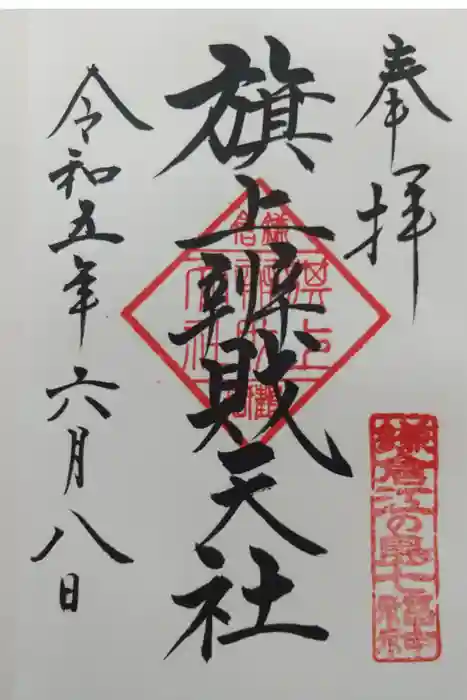 奉拝
旗上辨財天社
令和五年六月八日
鎌倉江の島七福神